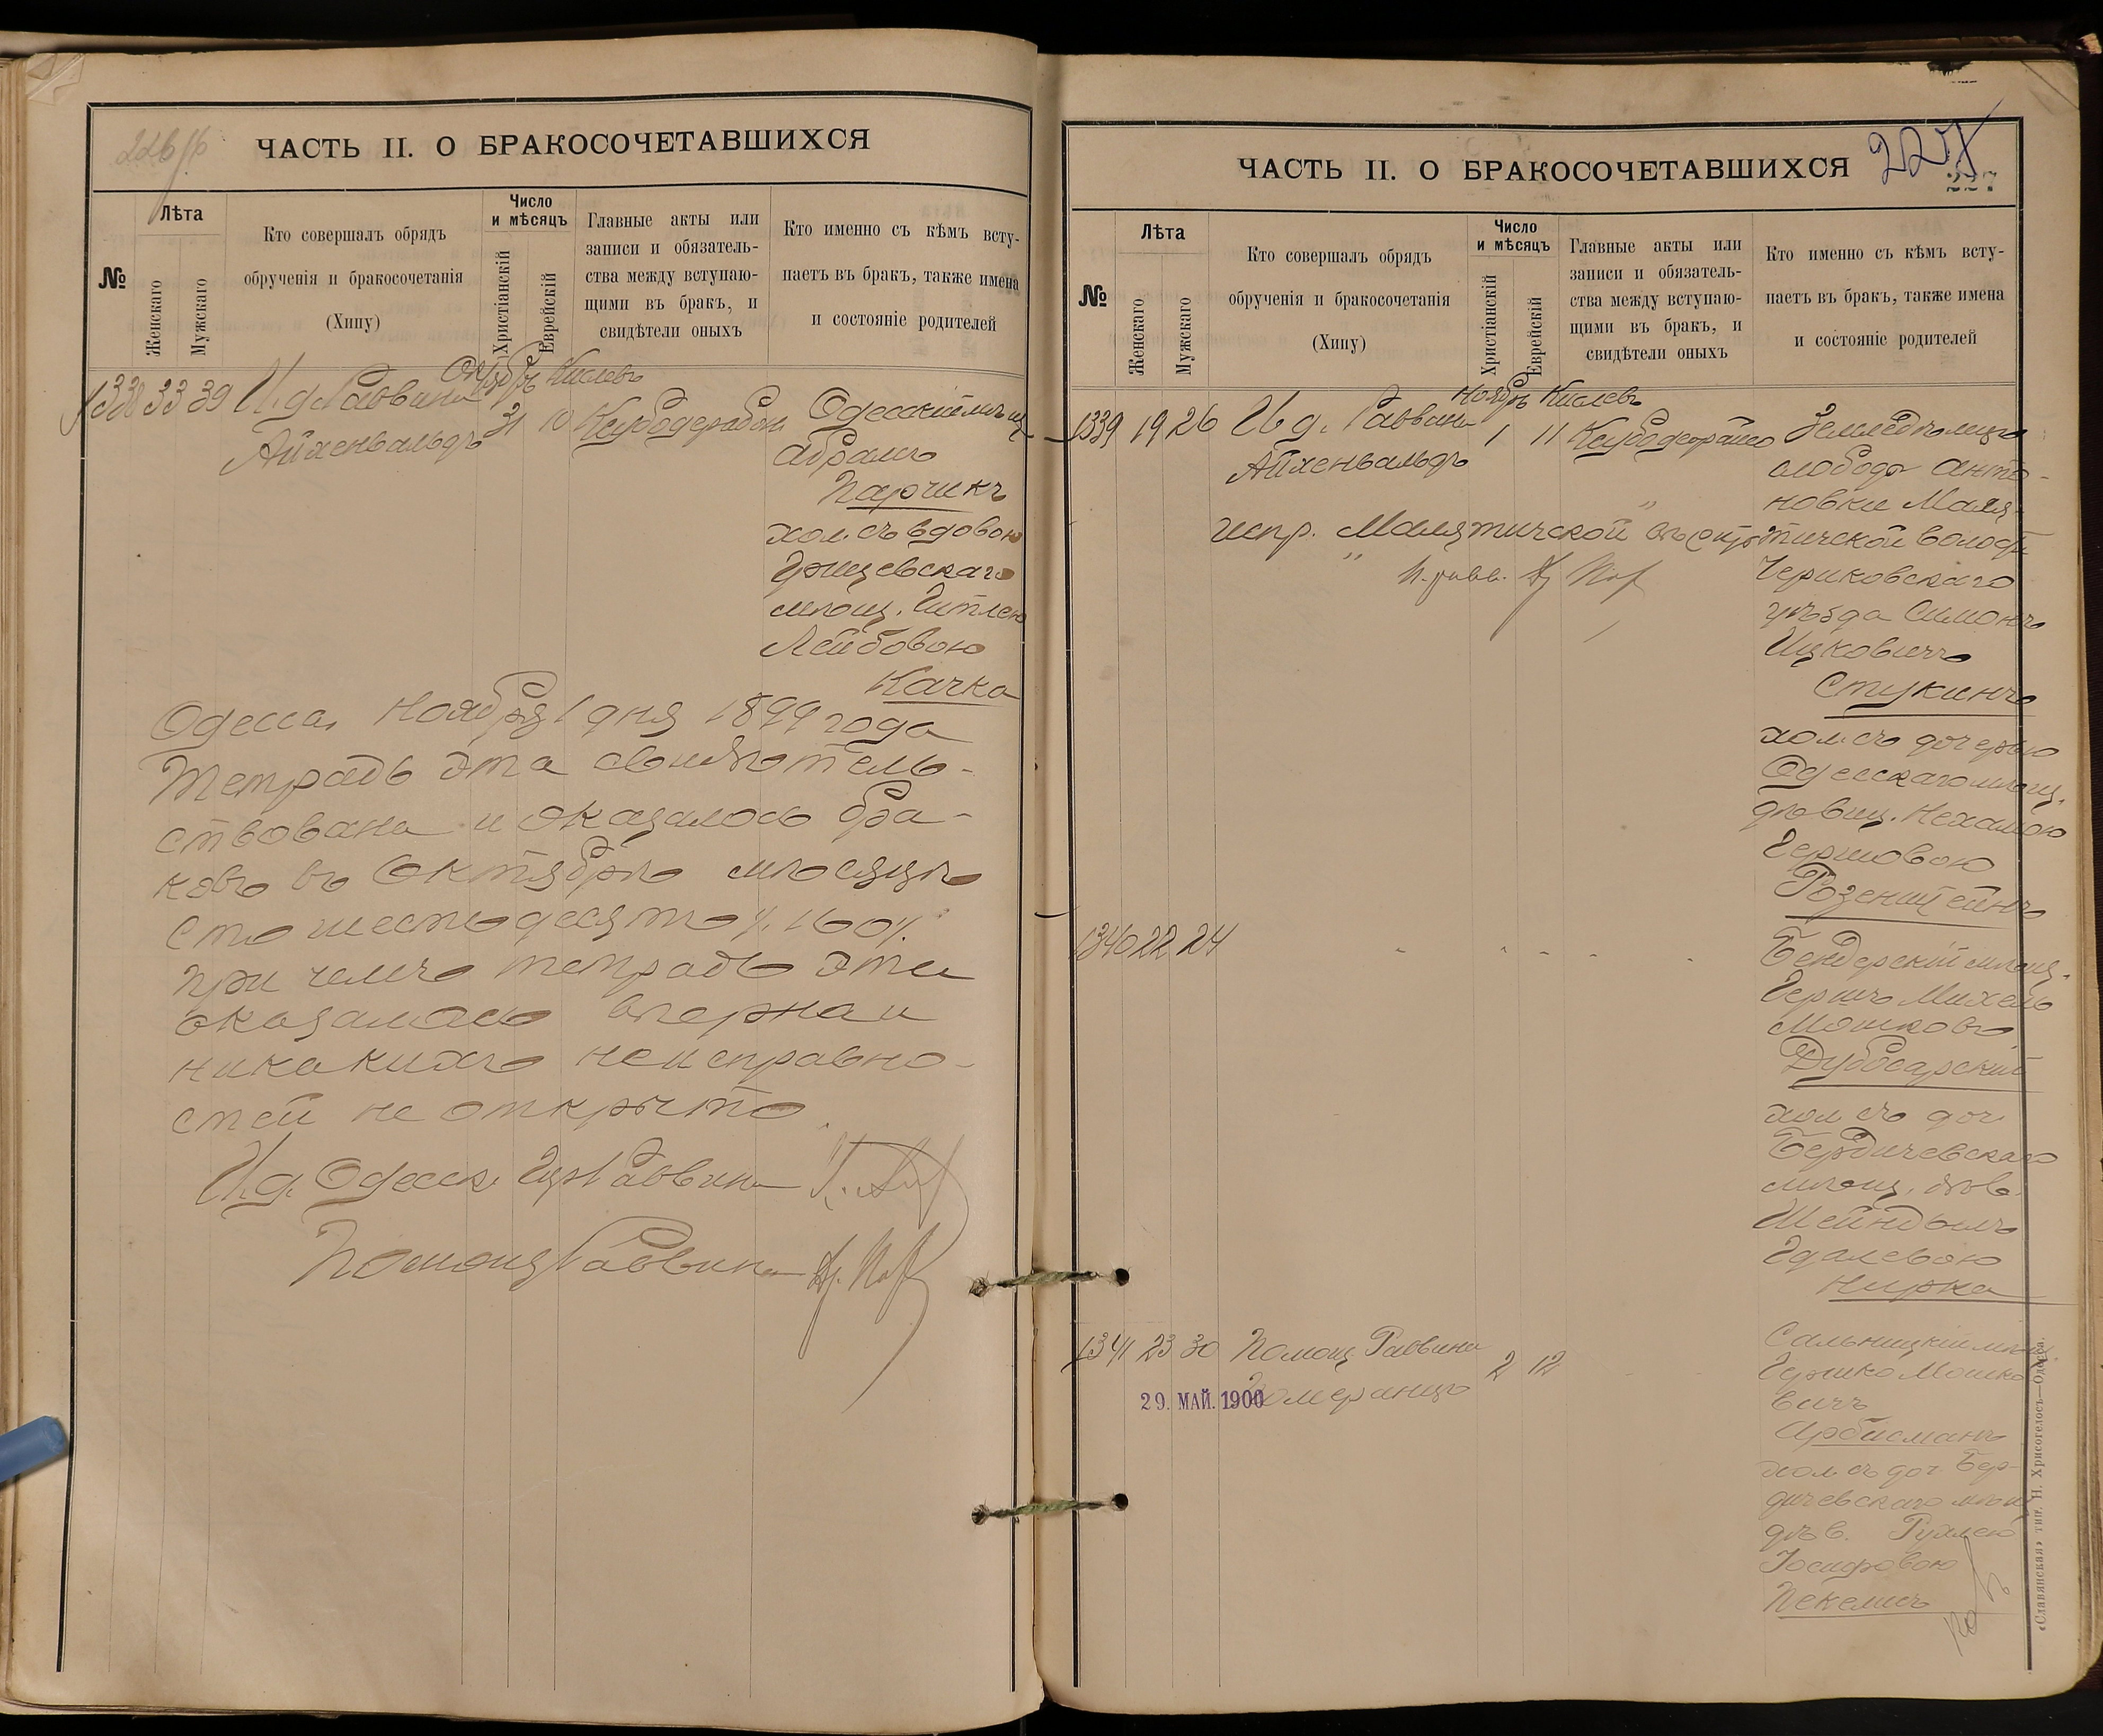 226 об.
ЧАСТЬ II. О БРАКОСОЧЕТАВШИХСЯ
№
Лѣта
Женскаго
Мужскаго
Кто совершалъ обрядъ
обрученія и бракосочетанія
(Хипу)
Число
и мѣсяцъ
Христіанскій
Еврейскій
Главные акты или
записи и обязатель-
ства между вступаю-
щими въ бракъ, и
свидѣтели оныхъ
Кто именно съ кѣмъ всту-
паетъ въ бракъ, также имена
и состояніе родителей
Октябрь Кислевъ
1338 33 39 И. д. Раввина 31 10 Одесскій мѣщ
Айхенвальдъ
Абрамъ
Парчикъ
хол. съ вдовою
мѣщ. Гитлею
Лейбовою
Качка
Одесса, Ноября 1 дня 1899 года
Тетрадь эта свидѣтель-
ствована и оказалось бра-
ковъ въ Октябрѣ мѣсяцѣ
Сто шестьдесятъ /160/.
При чемъ тетрадь эта
оказалась вѣрна и
никакихъ неисправно-
стей не открыто.
И. д. Одесск. Гор Раввина
Помощ Раввина
ЧАСТЬ II. О БРАКОСОЧЕТАВШИХСЯ
227
227
№
Лѣта
Женскаго
Мужскаго
Кто совершалъ обрядъ
обрученія и бракосочетанія
(Хипу)
Число
и мѣсяцъ
Христіанскій
Еврейскій
Главные акты или
записи и обязатель-
ства между вступаю-
щими въ бракъ, и
свидѣтели оныхъ
Кто именно съ кѣмъ всту-
паетъ въ бракъ, также имена
и состояніе родителей
Ноябрь Кислевъ
1339 19 26 И. д. Раввина 1 11 Земледѣлецъ
Айхенвальдъ
слободы Анто-
новки Маля-
тичской волости
испр. „Малятичской“
п. равв.
Чериковскаго
уѣзда Симонъ
Ицковичъ
Стукинъ
хол. съ дочерью
Одесскаго мѣщ.
дѣвиц. Нехамою
Гершовою
Розенштейнъ
1340 22 24 Бендерскій мѣщ.
Гершъ Михель
Мошковъ
Дубосарскій
хол. съ доч.
Бердичевскаго
мѣщ. дѣв.
Шейндлъ
Гдалевою
Нирка
1341 23 30 Помощ. Раввина 2 12 Сальницкій мѣщ.
Померанцъ
Гершко Мошко
вичъ
Арбисманъ
хол. съ доч. Бер-
дичевскаго мѣщ
дѣв. Рухлею
Іосифовою
Пекелисъ
29. МАЙ. 1900
«Славянская» тип. Н. Хрисогелосъ—Одесса.